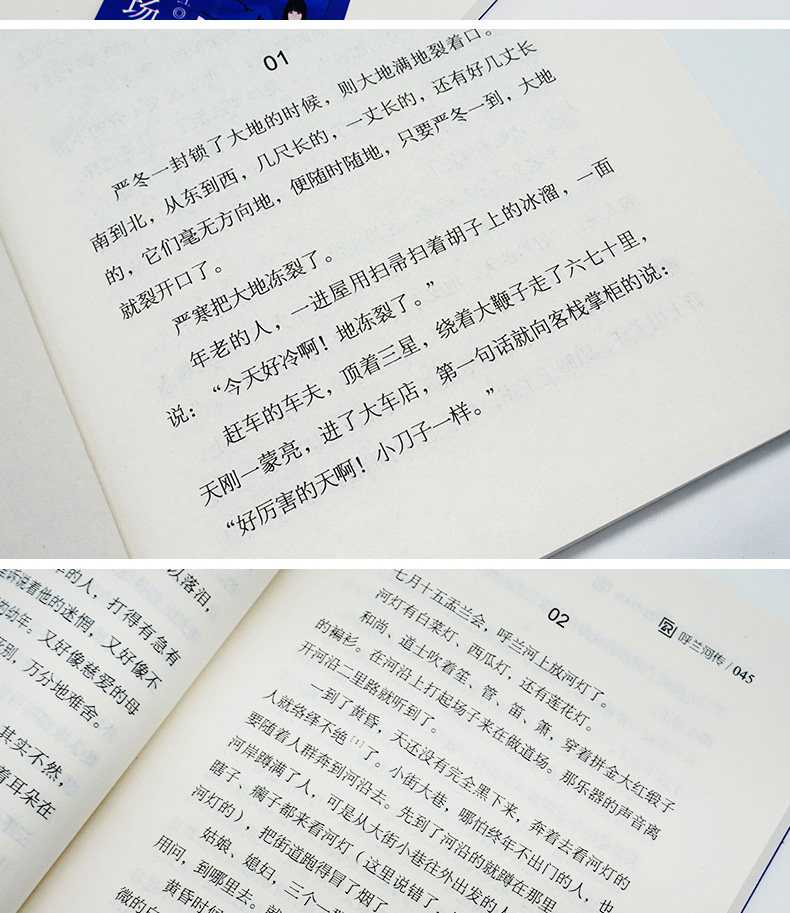 场
01
严冬一封锁了大地的时候，则大地满地裂着口。
南到北，从东到西，几尺长的，一丈长的，还有好几丈长
的，它们毫无方向地，便随时随地，只要严冬一到，大地
就裂开口了。
严寒把大地冻裂了。
年老的人，一进屋用扫帚扫着胡子上的冰溜，一面
说：“今天好冷啊！地冻裂了。”
赶车的车夫，顶着三星，绕着大鞭子走了六七十里，
天刚一蒙亮，进了大车店，第一句话就向客栈掌柜的说：
“好厉害的天啊！小刀子一样。”
以落泪，
的人，打得有急有
诉说着他的迷惘，又好像不
的幼年。又好像慈爱的母
别，万分地难舍。
其实不然，
着耳朵在
呼兰河传 / 045
02
七月十五盂兰会，呼兰河上放河灯了。
河灯有白菜灯、西瓜灯，还有莲花灯。
和尚、道士吹着笙、管、笛、箫，穿着拼金大红缎子
的褊衫。在河沿上打起场子来在做道场。那乐器的声音离
开河沿二里路就听到了。
一到了黄昏，天还没有完全黑下来，奔着去看河灯的
人就络绎不绝[1]了。小街大巷，哪怕终年不出门的人，也
要随着人群奔到河沿去。先到了河沿的就蹲在那里
河岸蹲满了人，可是从大街小巷往外出发的人
瞎子、瘸子都来看河灯（这里说错了
河灯的），把街道跑得冒了烟了
姑娘、媳妇，三个一
用问，到哪里去。就
黄昏时候
微的白